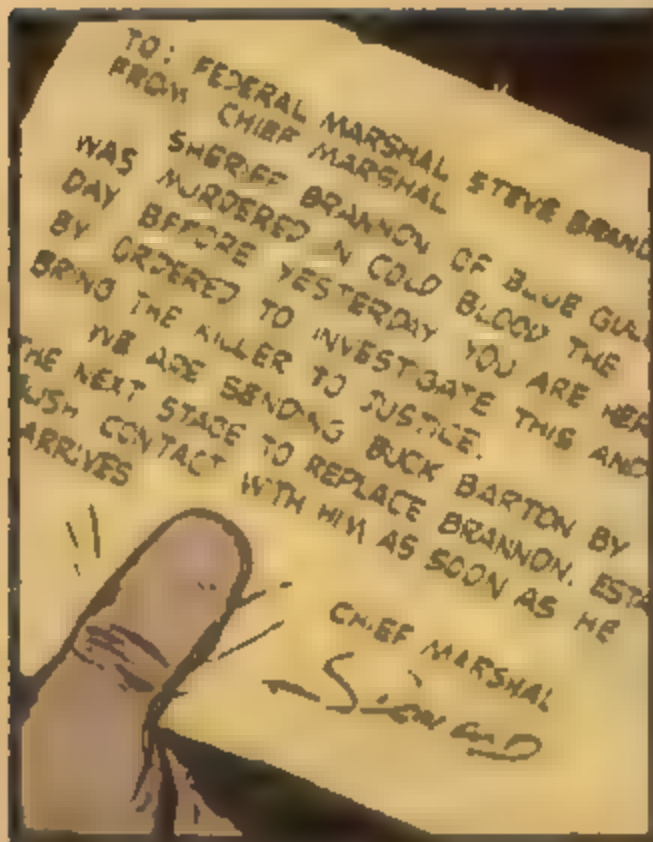 TO: FEDERAL MARSHAL STEVE BRAND
FROM CHIEF MARSHAL
SHERIFF BRANNON OF BLUE GUL
WAS MURDERED IN COLD BLOOD THE
DAY BEFORE YESTERDAY YOU ARE HER
BY ORDERED TO INVESTIGATE THIS AND
BRING THE KILLER TO JUSTICE.
WE ARE SENDING BUCK BARTON BY
THE NEXT STAGE TO REPLACE BRANNON. ESTA
LISH CONTACT WITH HIM AS SOON AS HE
ARRIVES
CHIEF MARSHAL